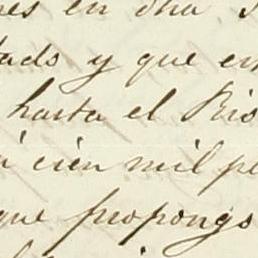 en dha
y que en
hasta el Rio
cien mil pe
que propongo